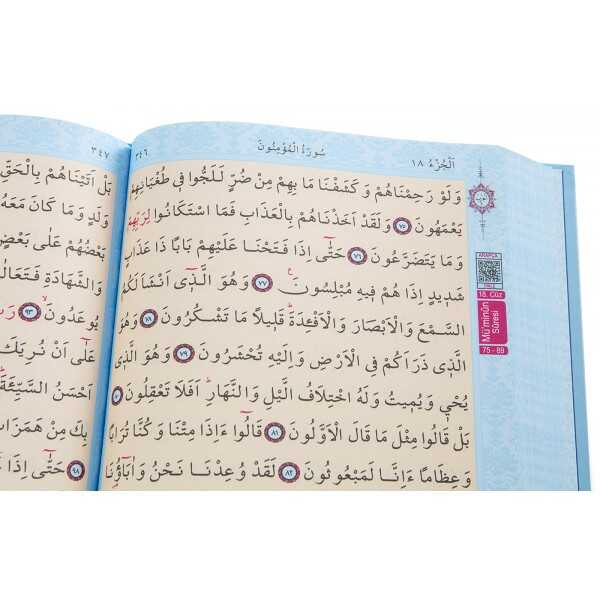 اَلْجُزْءُ ١٨
سُورَةُ الْمُؤْمِنُونَ
٣٤٦
وَلَوْ رَحِمْنَاهُمْ وَكَشَفْنَا مَا بِهِمْ مِنْ ضُرٍّ لَلَجُّوا فٖي طُغْيَانِهِمْ
يَعْمَهُونَ ٧٥ وَلَقَدْ اَخَذْنَاهُمْ بِالْعَذَابِ فَمَا اسْتَكَانُوا لِرَبِّهِمْ
وَمَا يَتَضَرَّعُونَ ٧٦ حَتّٰٓى اِذَا فَتَحْنَا عَلَيْهِمْ بَابًا ذَا عَذَابٍ
شَدٖيدٍ اِذَا هُمْ فٖيهِ مُبْلِسُونَ ٧٧ وَهُوَ الَّذٖٓي اَنْشَاَ لَكُمُ
السَّمْعَ وَالْاَبْصَارَ وَالْاَفْـِٔدَةَ قَلٖيلًا مَا تَشْكُرُونَ ٧٨ وَهُوَ
الَّذٖي ذَرَاَكُمْ فِي الْاَرْضِ وَاِلَيْهِ تُحْشَرُونَ ٧٩ وَهُوَ الَّذٖي
يُحْيٖ وَيُمٖيتُ وَلَهُ اخْتِلَافُ الَّيْلِ وَالنَّهَارِ اَفَلَا تَعْقِلُونَ
بَلْ قَالُوا مِثْلَ مَا قَالَ الْاَوَّلُونَ ٨١ قَالُٓوا ءَاِذَا مِتْنَا وَكُنَّا تُرَابًا
وَعِظَامًا ءَاِنَّا لَمَبْعُوثُونَ ٨٢ لَقَدْ وُعِدْنَا نَحْنُ وَاٰبَٓاؤُ۬نَا
ARAPÇA
18. Cüz
Mü'minûn
Sûresi
75 - 89
٣٤٧
بَلْ اَتَيْنَاهُمْ بِالْحَقِّ
وَلَدٍ وَمَا كَانَ مَعَهُ
بَعْضُهُمْ عَلٰى بَعْضٍ
وَالشَّهَادَةِ فَتَعَالٰى
يُوعَدُونَ ٩٣
عَلٰٓى اَنْ نُرِيَكَ
اَحْسَنُ السَّيِّئَةَ
بِكَ مِنْ هَمَزَاتِ
٩٨ حَتّٰٓى اِذَا